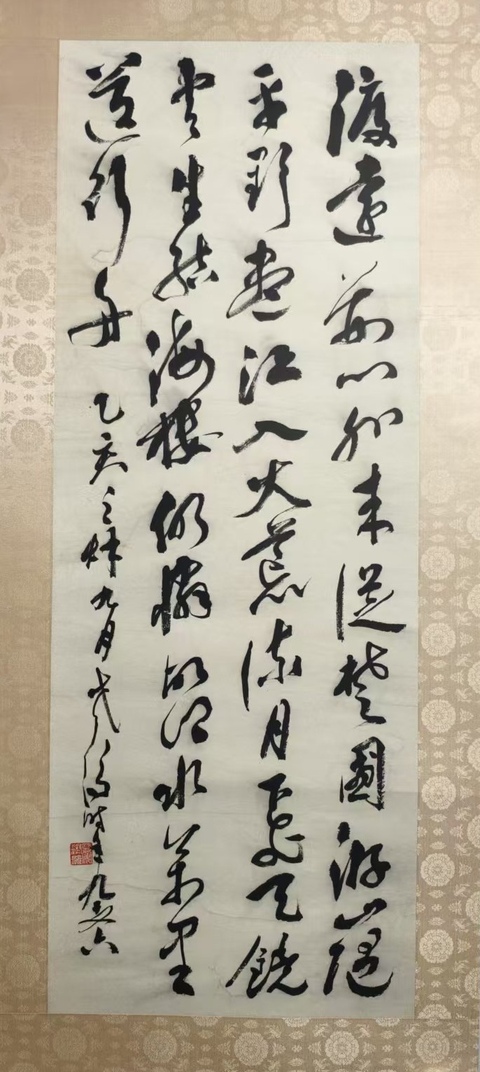 渡遠荊門外來從楚國游山隨
平野盡江入大荒流月下飛天鏡
雲生結海樓仍憐故鄉水萬里
送行舟 乙亥之秋九月 時年九十六